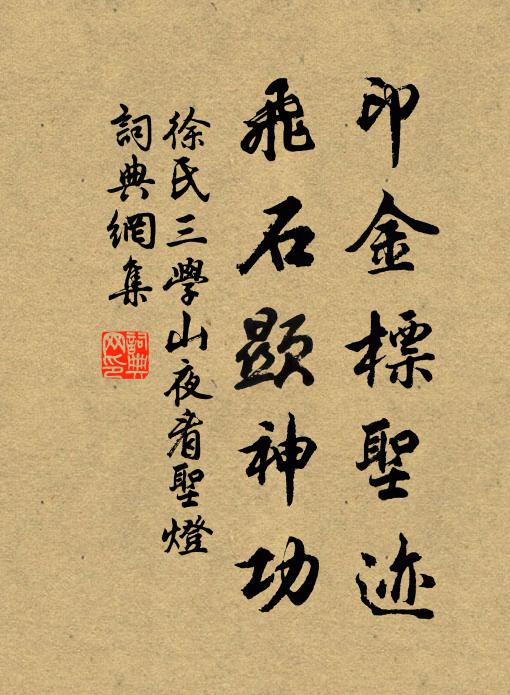 印金標聖迹
飛石顯神功
徐氏三學山夜看聖燈
詞典網集
詞典網印